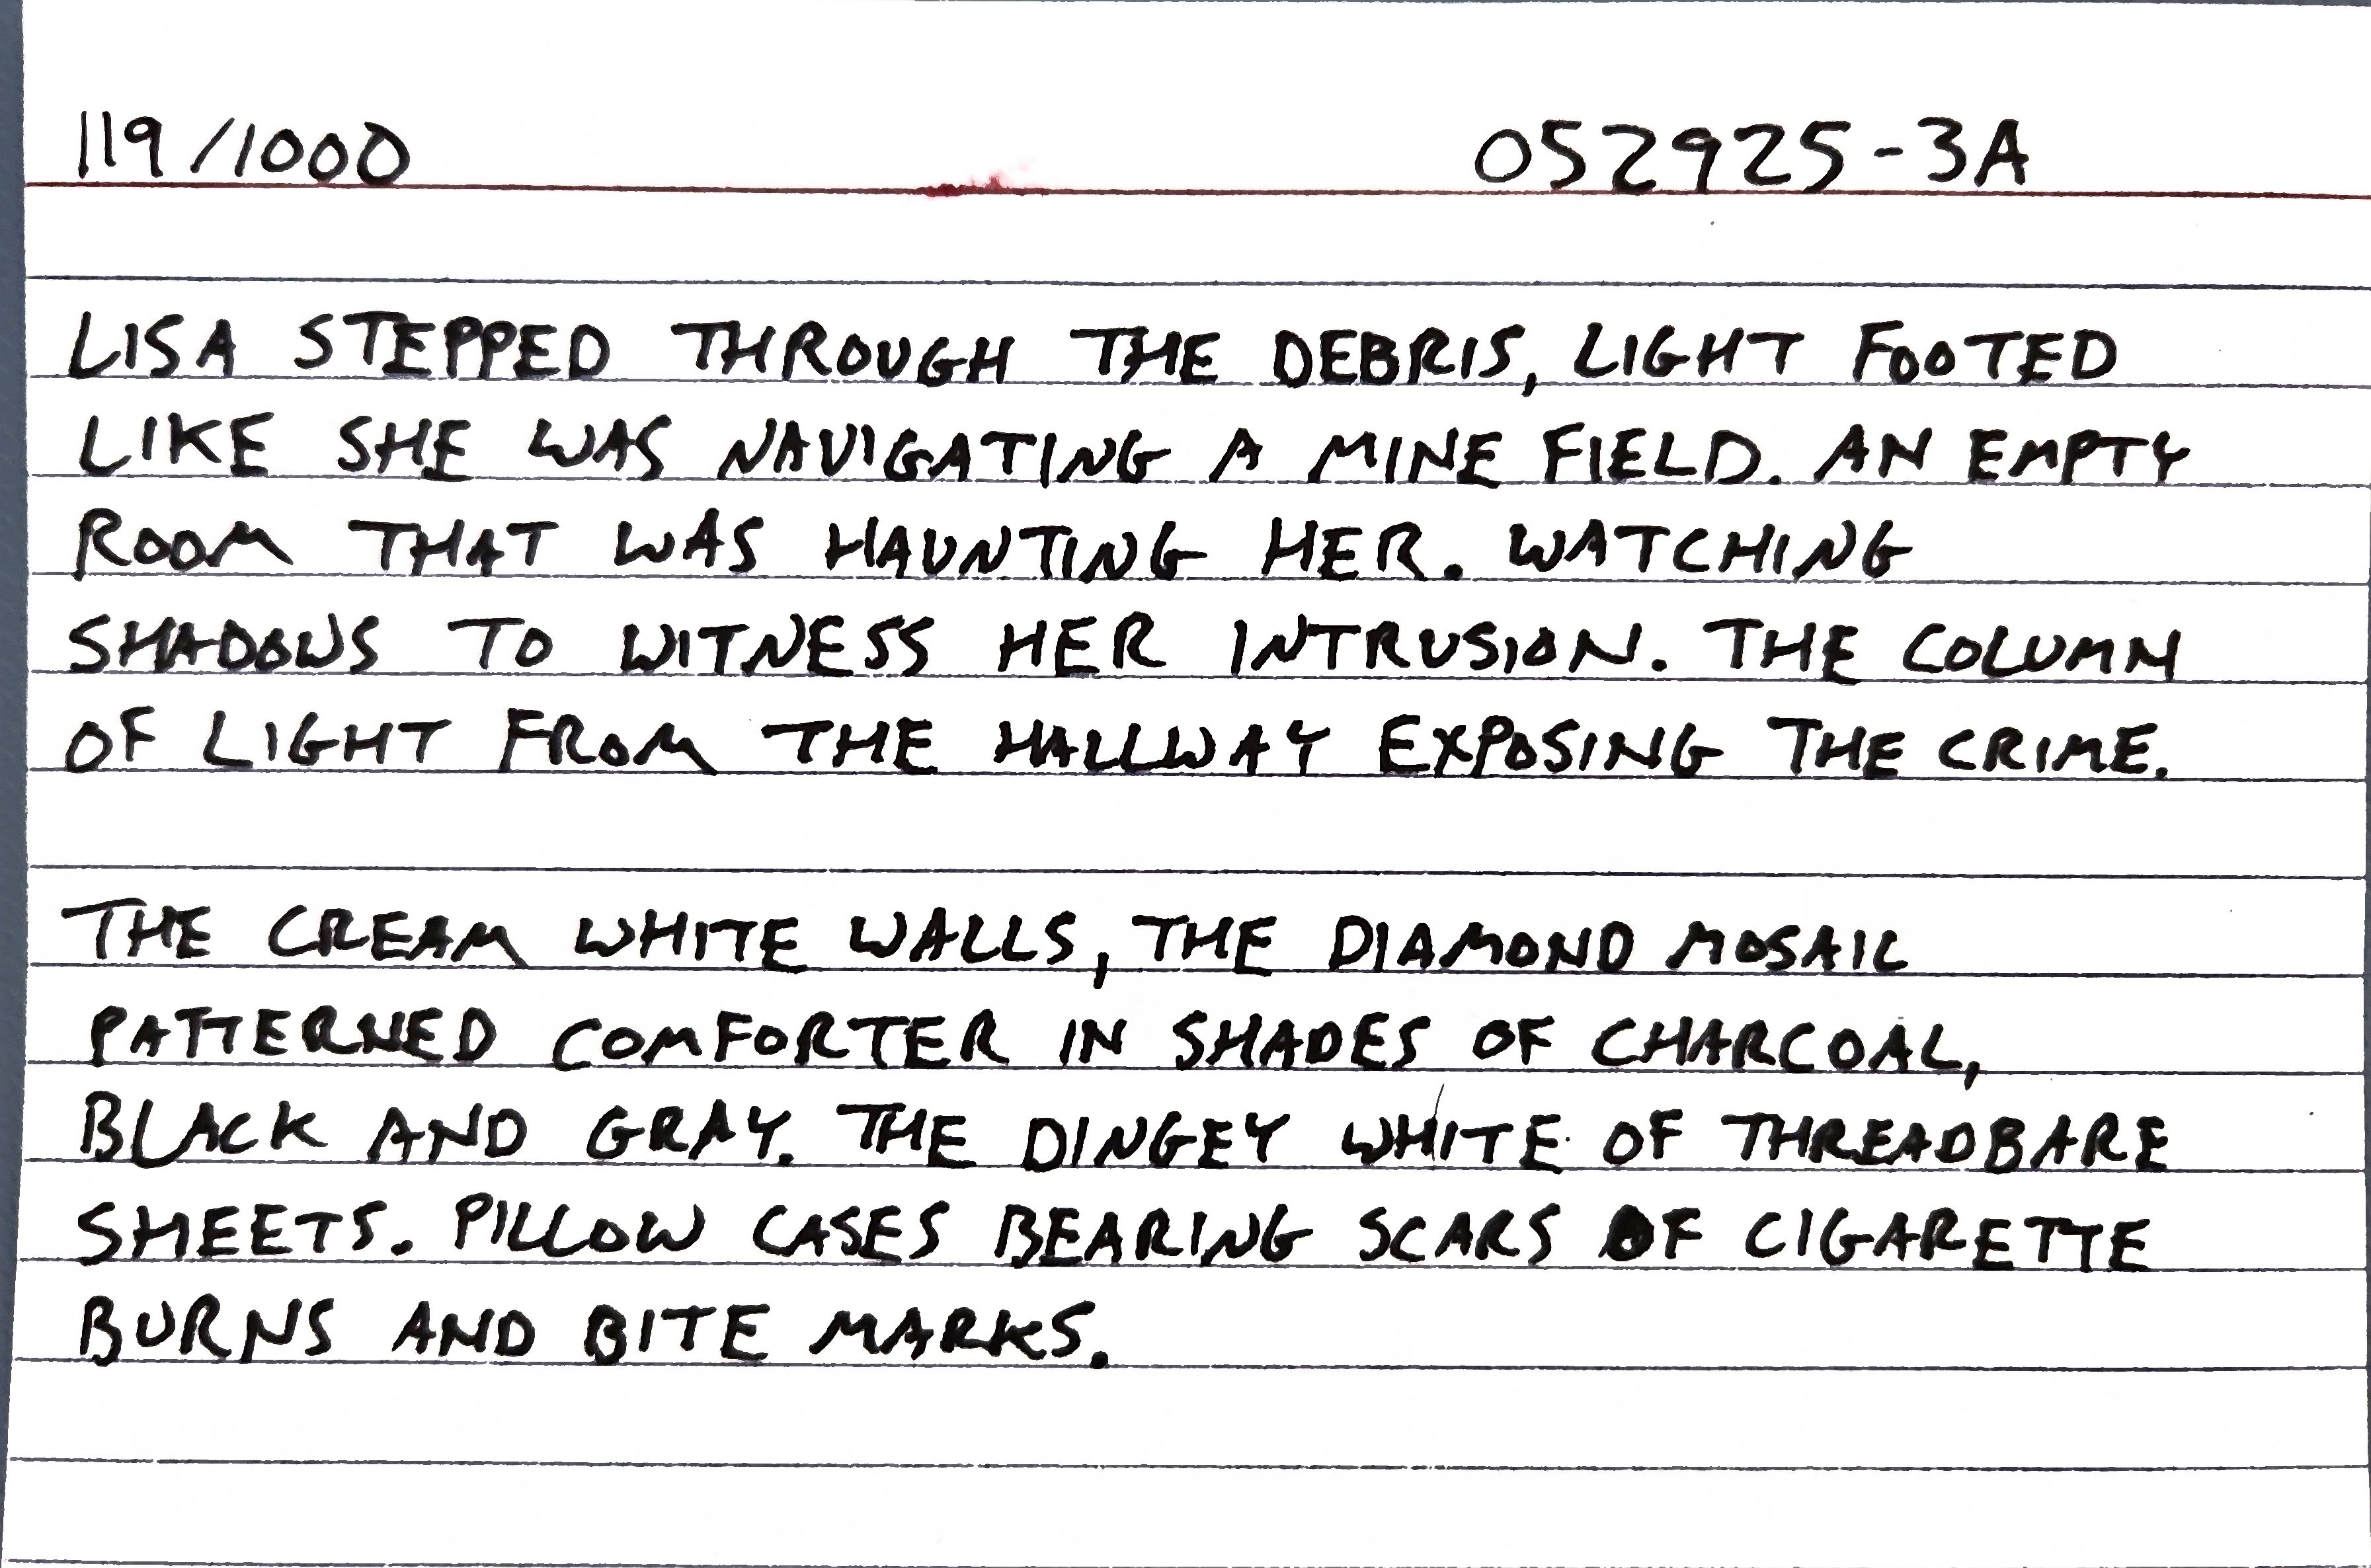 119/1000 052925-3A
LISA STEPPED THROUGH THE DEBRIS, LIGHT FOOTED
LIKE SHE WAS NAVIGATING A MINE FIELD. AN EMPTY
ROOM THAT WAS HAUNTING HER. WATCHING
SHADOWS TO WITNESS HER INTRUSION. THE COLUMN
OF LIGHT FROM THE HALLWAY EXPOSING THE CRIME.
THE CREAM WHITE WALLS, THE DIAMOND MOSAIC
PATTERNED COMFORTER IN SHADES OF CHARCOAL,
BLACK AND GRAY. THE DINGEY WHITE OF THREADBARE
SHEETS. PILLOW CASES BEARING SCARS OF CIGARETTE
BURNS AND BITE MARKS.